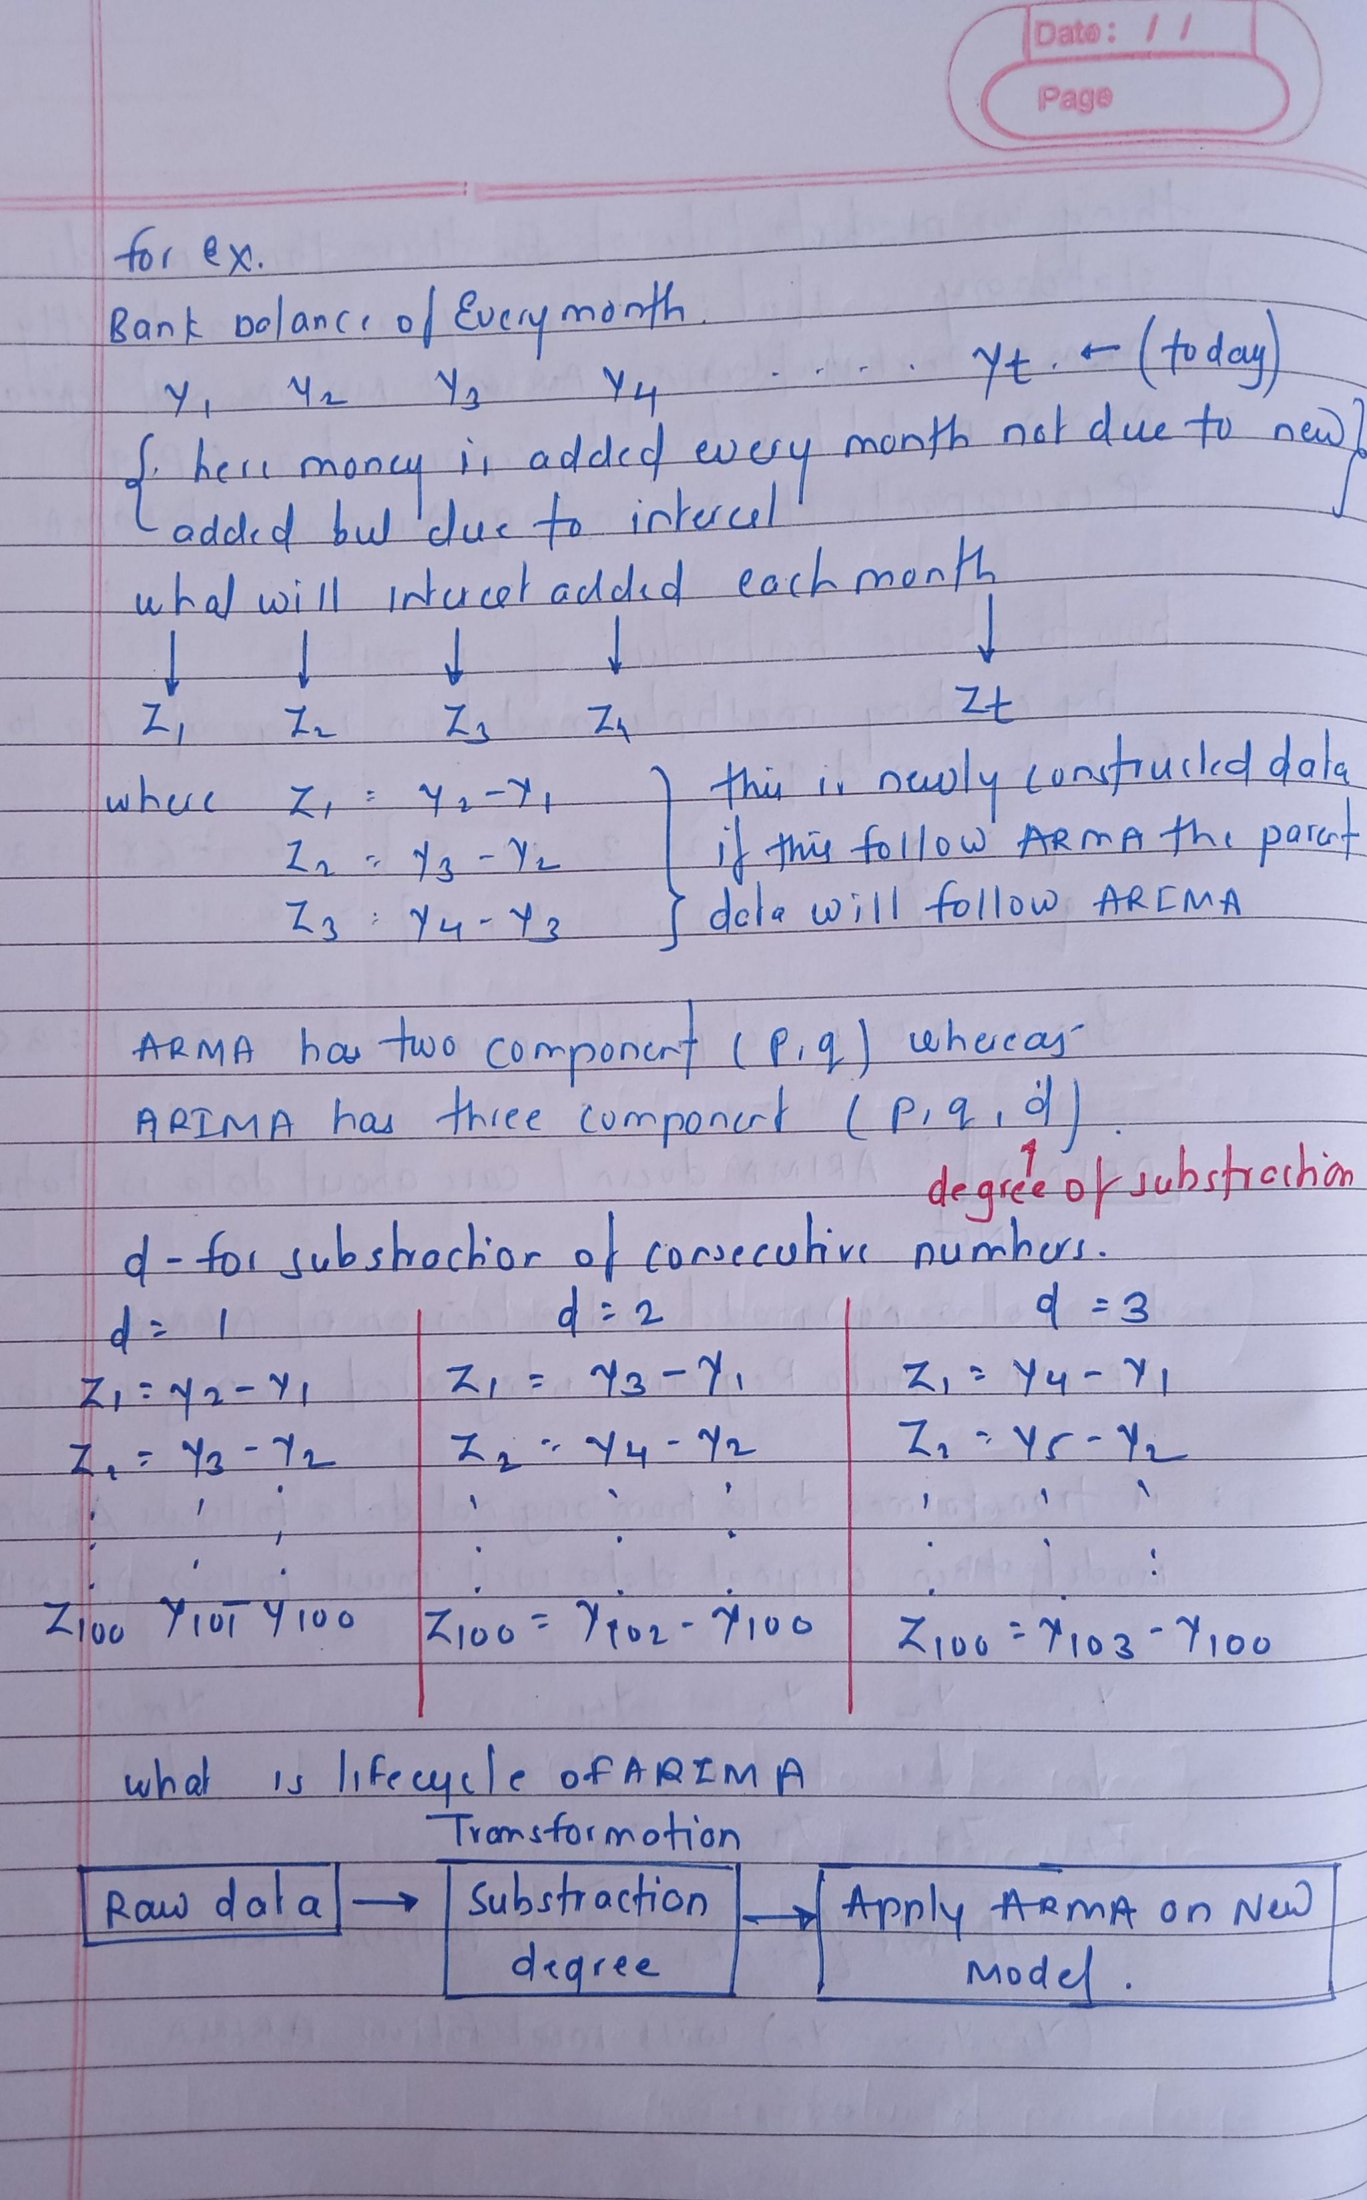 Date: / /
Page
for ex.
Bank balance of Every month.
y1 y2 y3 y4 ........ yt. ← (today)
{. here money is added every month not due to new}
added but due to interest
what will interest added each month
↓ ↓ ↓ ↓ ↓
Z1 Z2 Z3 Z4 Zt
where Z1 = y2-y1 } this is newly constructed data
Z2 = y3-y2 if this follow ARMA the parent
Z3 = y4-y3 data will follow ARIMA
ARMA has two component (p,q) whereas
ARIMA has three component (p,q,d).
↑
degree of substraction
d - for substraction of consecutive numbers.
d = 1 d = 2 d = 3
Z1 = y2-y1 Z1 = y3-y1 Z1 = y4-y1
Z2 = y3-y2 Z2 = y4-y2 Z2 = y5-y2
Z100 y101-y100 Z100 = y102-y100 Z100 = y103-y100
what is lifecycle of ARIMA
Transformation
Raw data → Substraction → Apply ARMA on New
degree Model.